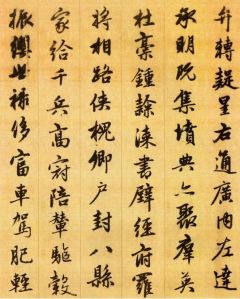 弁轉疑星右通廣内左達
承明既集墳典亦聚羣英
杜稾鍾隸漆書壁經府羅
將相路俠槐卿户封八縣
家給千兵高冠陪輦驅轂
振纓世禄侈富車駕肥輕